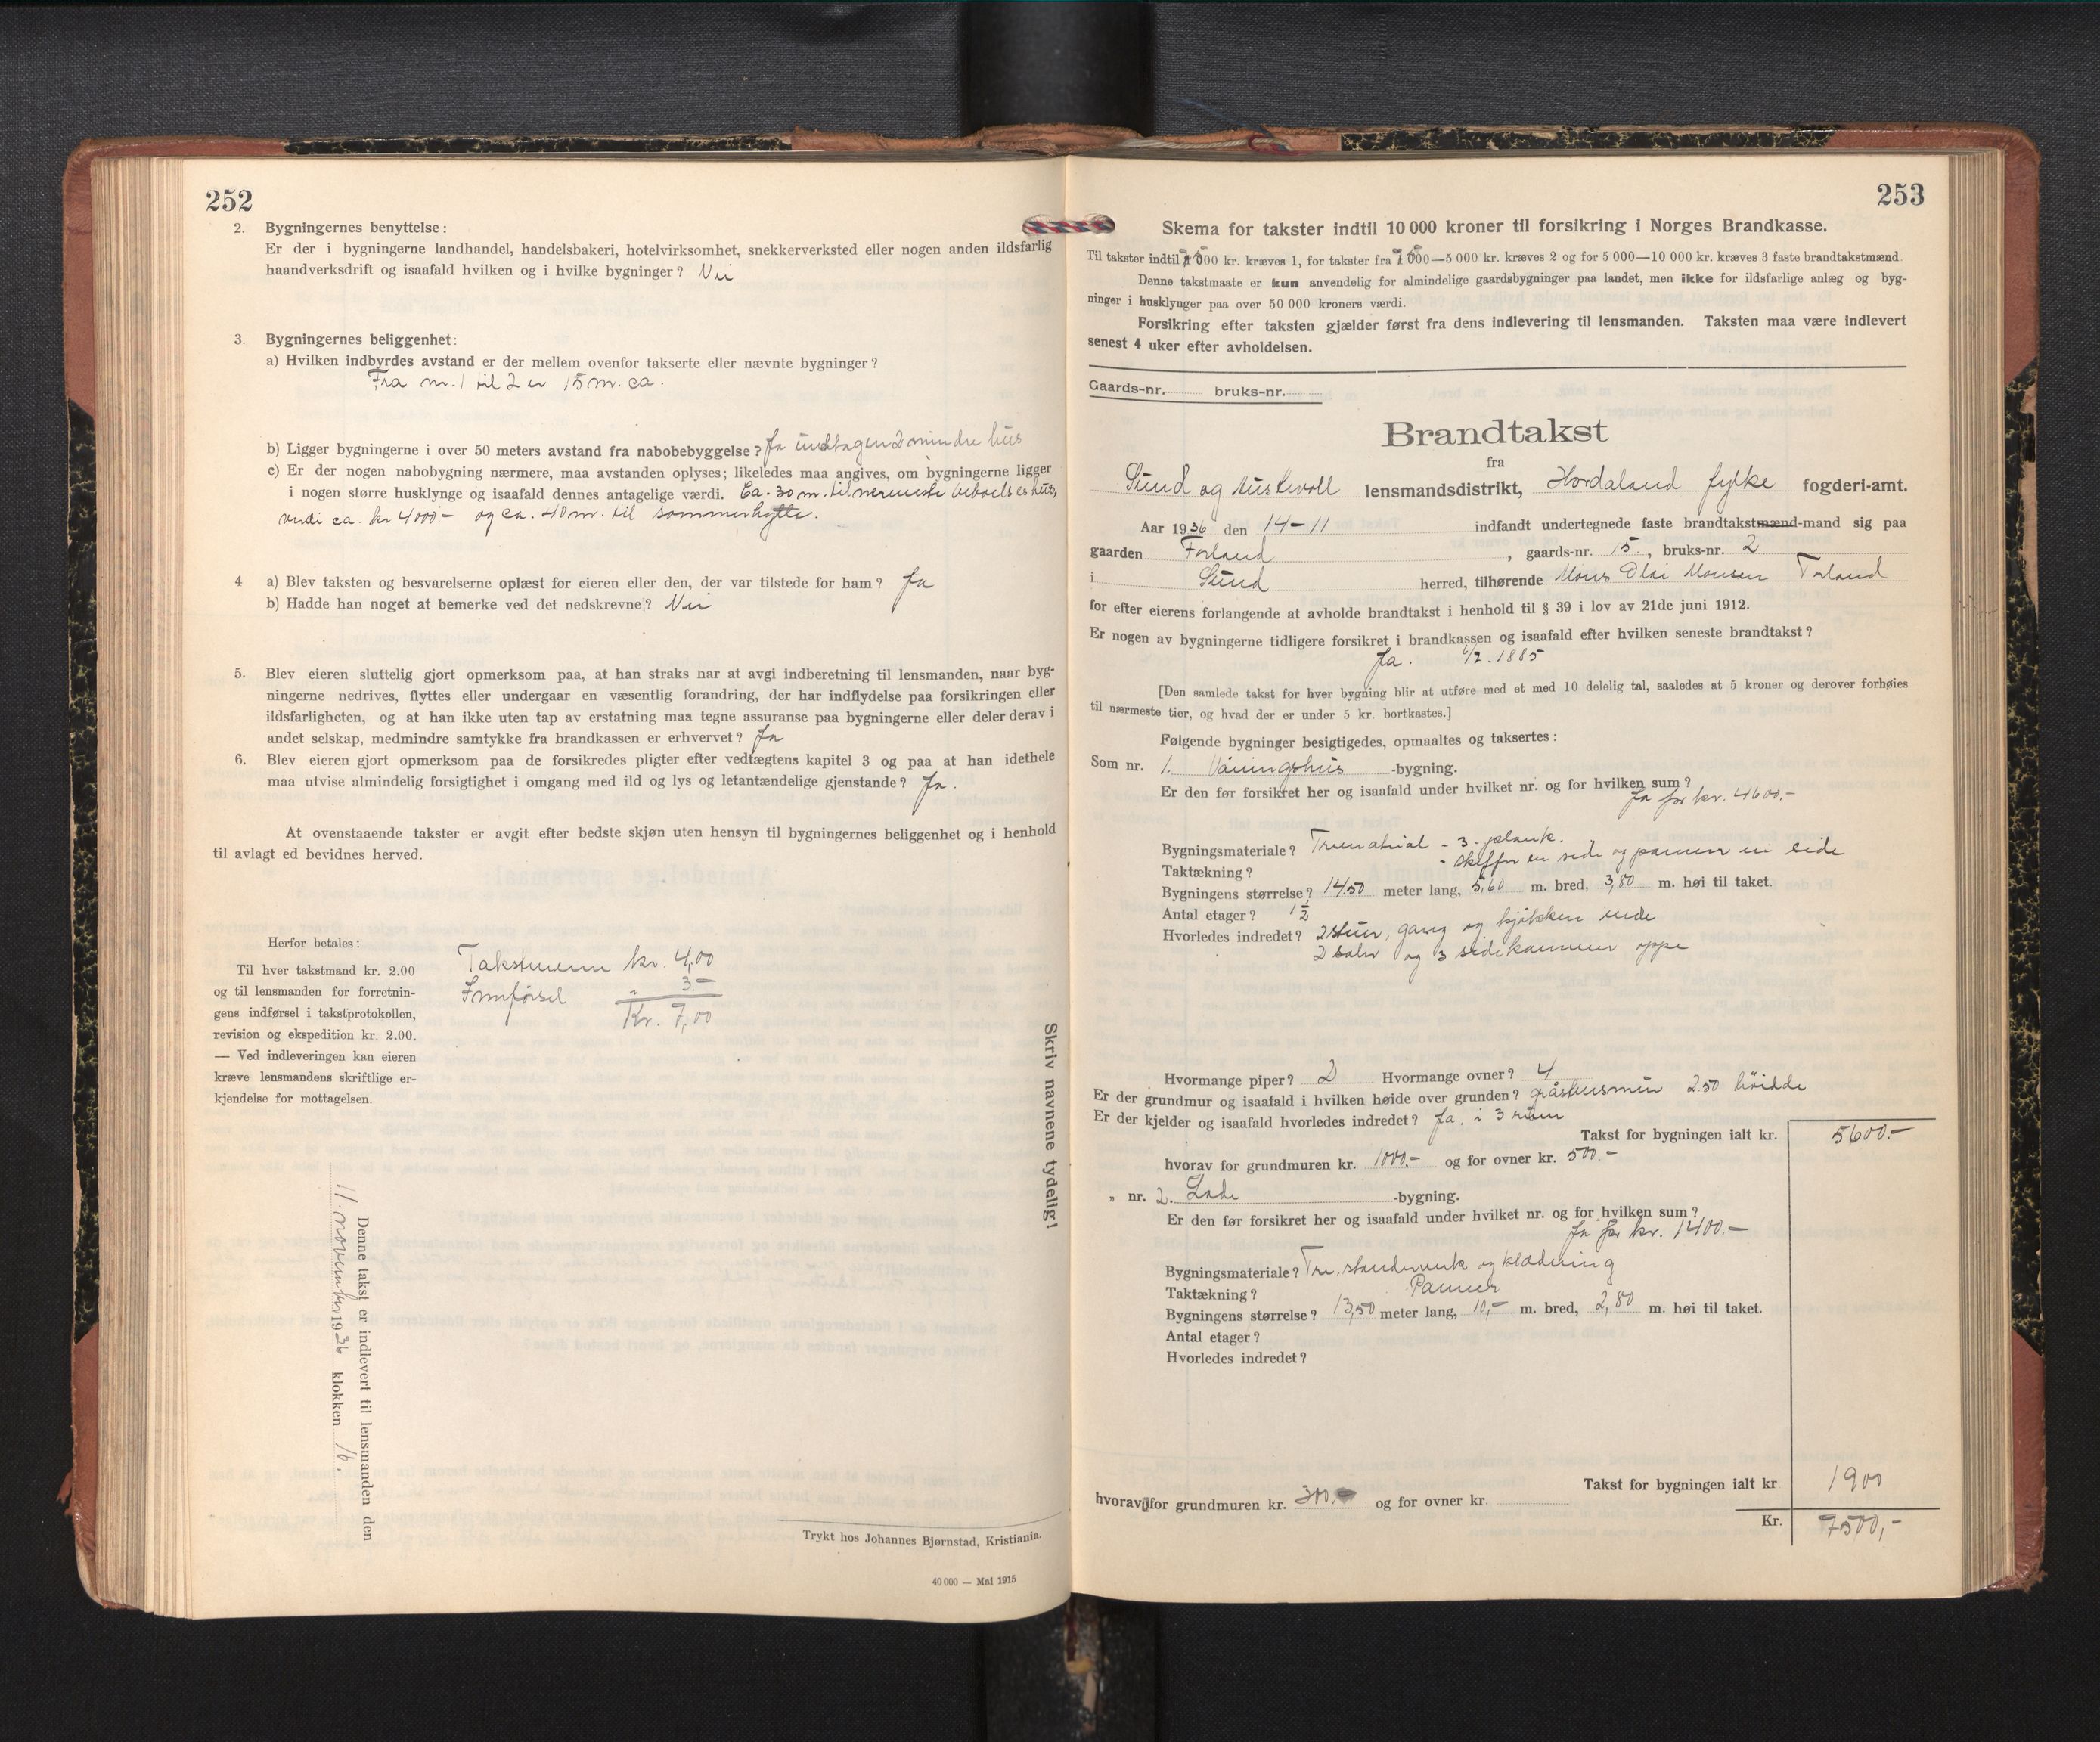 252
2. Bygningernes benyttelse:
Er der i bygningerne landhandel, handelsbakeri, hotelvirksomhet, snekkerverksted eller nogen anden ildsfarlig
haandverksdrift og isaafald hvilken og i hvilke bygninger? Nei
3. Bygningernes beliggenhet:
a) Hvilken indbyrdes avstand er der mellem ovenfor takserte eller nævnte bygninger?
Fra nr. 1 til 2 er 15 m. ca.
b) Ligger bygningerne i over 50 meters avstand fra nabobebyggelse? Ja undtagen 2 mindre hus
c) Er der nogen nabobygning nærmere, maa avstanden oplyses; likeledes maa angives, om bygningerne ligger
i nogen større husklynge og isaafald dennes antagelige værdi. Ca. 30 m. til nermeste beboelseshus,
verdi ca. kr 4000.- og ca. 40 m. til sommerhytte.
4 a) Blev taksten og besvarelserne oplæst for eieren eller den, der var tilstede for ham? Ja
b) Hadde han noget at bemerke ved det nedskrevne? Nei
5. Blev eieren sluttelig gjort opmerksom paa, at han straks har at avgi indberetning til lensmanden, naar byg-
ningerne nedrives, flyttes eller undergaar en væsentlig forandring, der har indflydelse paa forsikringen eller
ildsfarligheten, og at han ikke uten tap av erstatning maa tegne assuranse paa bygningerne eller deler derav i
andet selskap, medmindre samtykke fra brandkassen er erhvervet? Ja
6. Blev eieren gjort opmerksom paa de forsikredes pligter efter vedtægtens kapitel 3 og paa at han idethele
maa utvise almindelig forsigtighet i omgang med ild og lys og letantændelige gjenstande? Ja.
At ovenstaaende takster er avgit efter bedste skjøn uten hensyn til bygningernes beliggenhet og i henhold
til avlagt ed bevidnes herved.
Herfor betales:
Til hver takstmand kr. 2.00
og til lensmanden for forretnin-
gens indførsel i takstprotokollen,
revision og ekspedition kr. 2.00.
— Ved indleveringen kan eieren
kræve lensmandens skriftlige er-
kjendelse for mottagelsen.
Takstmenn kr. 4,00
Innførsel " 3.-
Kr. 7,00
Skriv navnene tydelig!
Denne takst er indlevert til lensmanden den
11. november 1936 klokken 16.
Trykt hos Johannes Bjørnstad, Kristiania.
40 000 — Mai 1915
253
Skema for takster indtil 10 000 kroner til forsikring i Norges Brandkasse.
Til takster indtil 000 kr. kræves 1, for takster fra 000—5 000 kr. kræves 2 og for 5 000—10 000 kr. kræves 3 faste brandtakstmænd.
Denne takstmaate er kun anvendelig for almindelige gaardsbygninger paa landet, men ikke for ildsfarlige anlæg og byg-
ninger i husklynger paa over 50 000 kroners værdi.
Forsikring efter taksten gjælder først fra dens indlevering til lensmanden. Taksten maa være indlevert
senest 4 uker efter avholdelsen.
Gaards-nr. bruks-nr.
Brandtakst
fra
Sund og Austevoll lensmandsdistrikt, Hordaland fylke fogderi-amt.
Aar 1936 den 14-11 indfandt undertegnede faste brandtakstmænd-mand sig paa
gaarden Forland, gaards-nr. 15, bruks-nr. 2
i Sund herred, tilhørende Mons Olai Monsen Forland
for efter eierens forlangende at avholde brandtakst i henhold til § 39 i lov av 21de juni 1912.
Er nogen av bygningerne tidligere forsikret i brandkassen og isaafald efter hvilken seneste brandtakst?
Ja. 6/2. 1885
[Den samlede takst for hver bygning blir at utføre med et med 10 delelig tal, saaledes at 5 kroner og derover forhøies
til nærmeste tier, og hvad der er under 5 kr. bortkastes.]
Følgende bygninger besigtigedes, opmaaltes og taksertes:
Som nr. 1. Våningshus -bygning.
Er den før forsikret her og isaafald under hvilket nr. og for hvilken sum?
Ja for kr. 4600.-
Bygningsmateriale? Trematrial - 3. plank.
Taktækning? - skiffer en side og panner en side
Bygningens størrelse? 14,50 meter lang, 5,60 m. bred, 3,80 m. høi til taket.
Antal etager? 1 1/2
Hvorledes indredet? 2 stuer, gang og kjøkken nede
2 saler og 3 sidekammer oppe
Hvormange piper? 2 Hvormange ovner? 4
Er der grundmur og isaafald i hvilken høide over grunden? gråstensmur 2.50 høidde
Er der kjelder og isaafald hvorledes indredet? Ja. i 3 rum
Takst for bygningen ialt kr. 5600.-
hvorav for grundmuren kr. 1000.- og for ovner kr. 500.-
„ nr. 2. Lade -bygning.
Er den før forsikret her og isaafald under hvilket nr. og for hvilken sum?
Ja for kr. 1400.-
Bygningsmateriale? Tre. standerverk og klædning
Taktækning? Panner
Bygningens størrelse? 13,50 meter lang, 10,- m. bred, 2,80 m. høi til taket.
Antal etager?
Hvorledes indredet?
Takst for bygningen ialt kr 1900
hvorav for grundmuren kr. 300.- og for ovner kr.
Kr. 7500,-